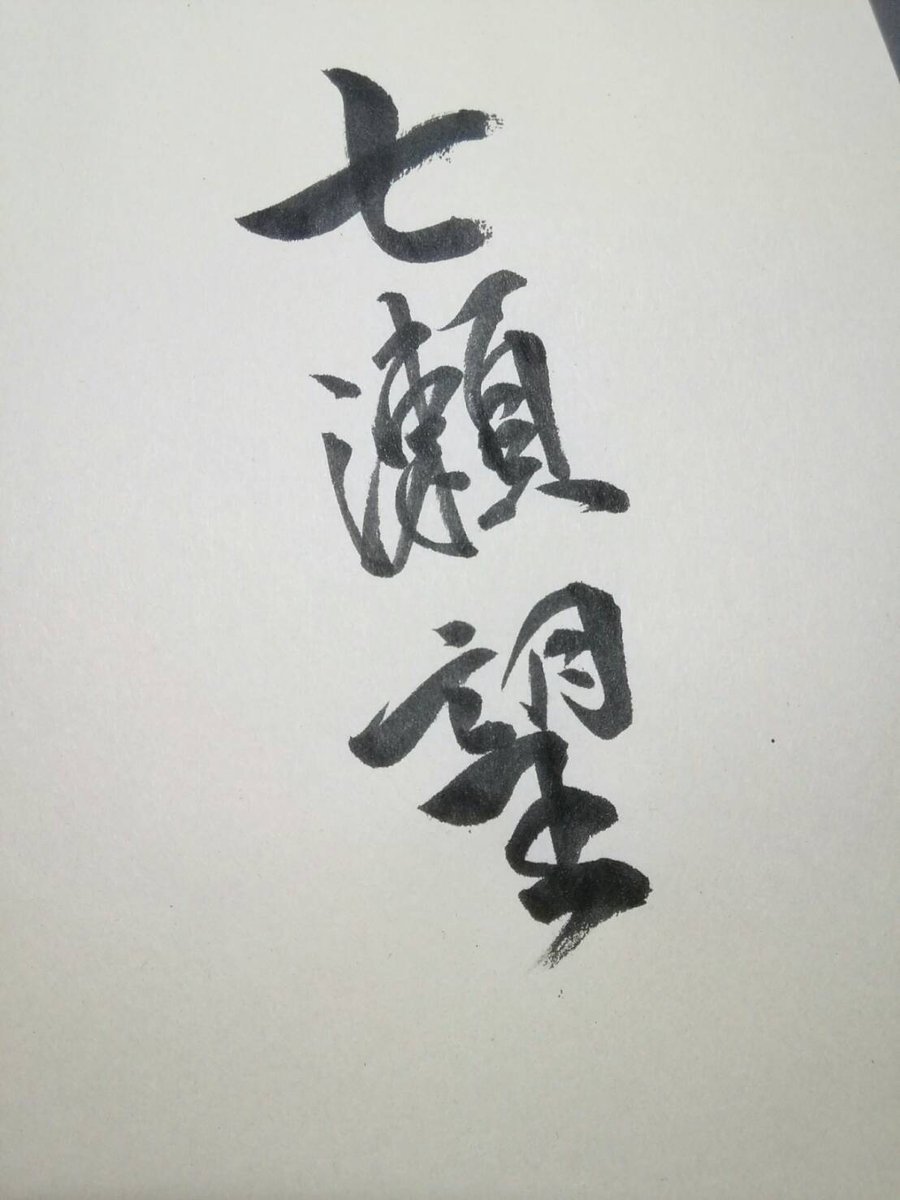 七瀬望